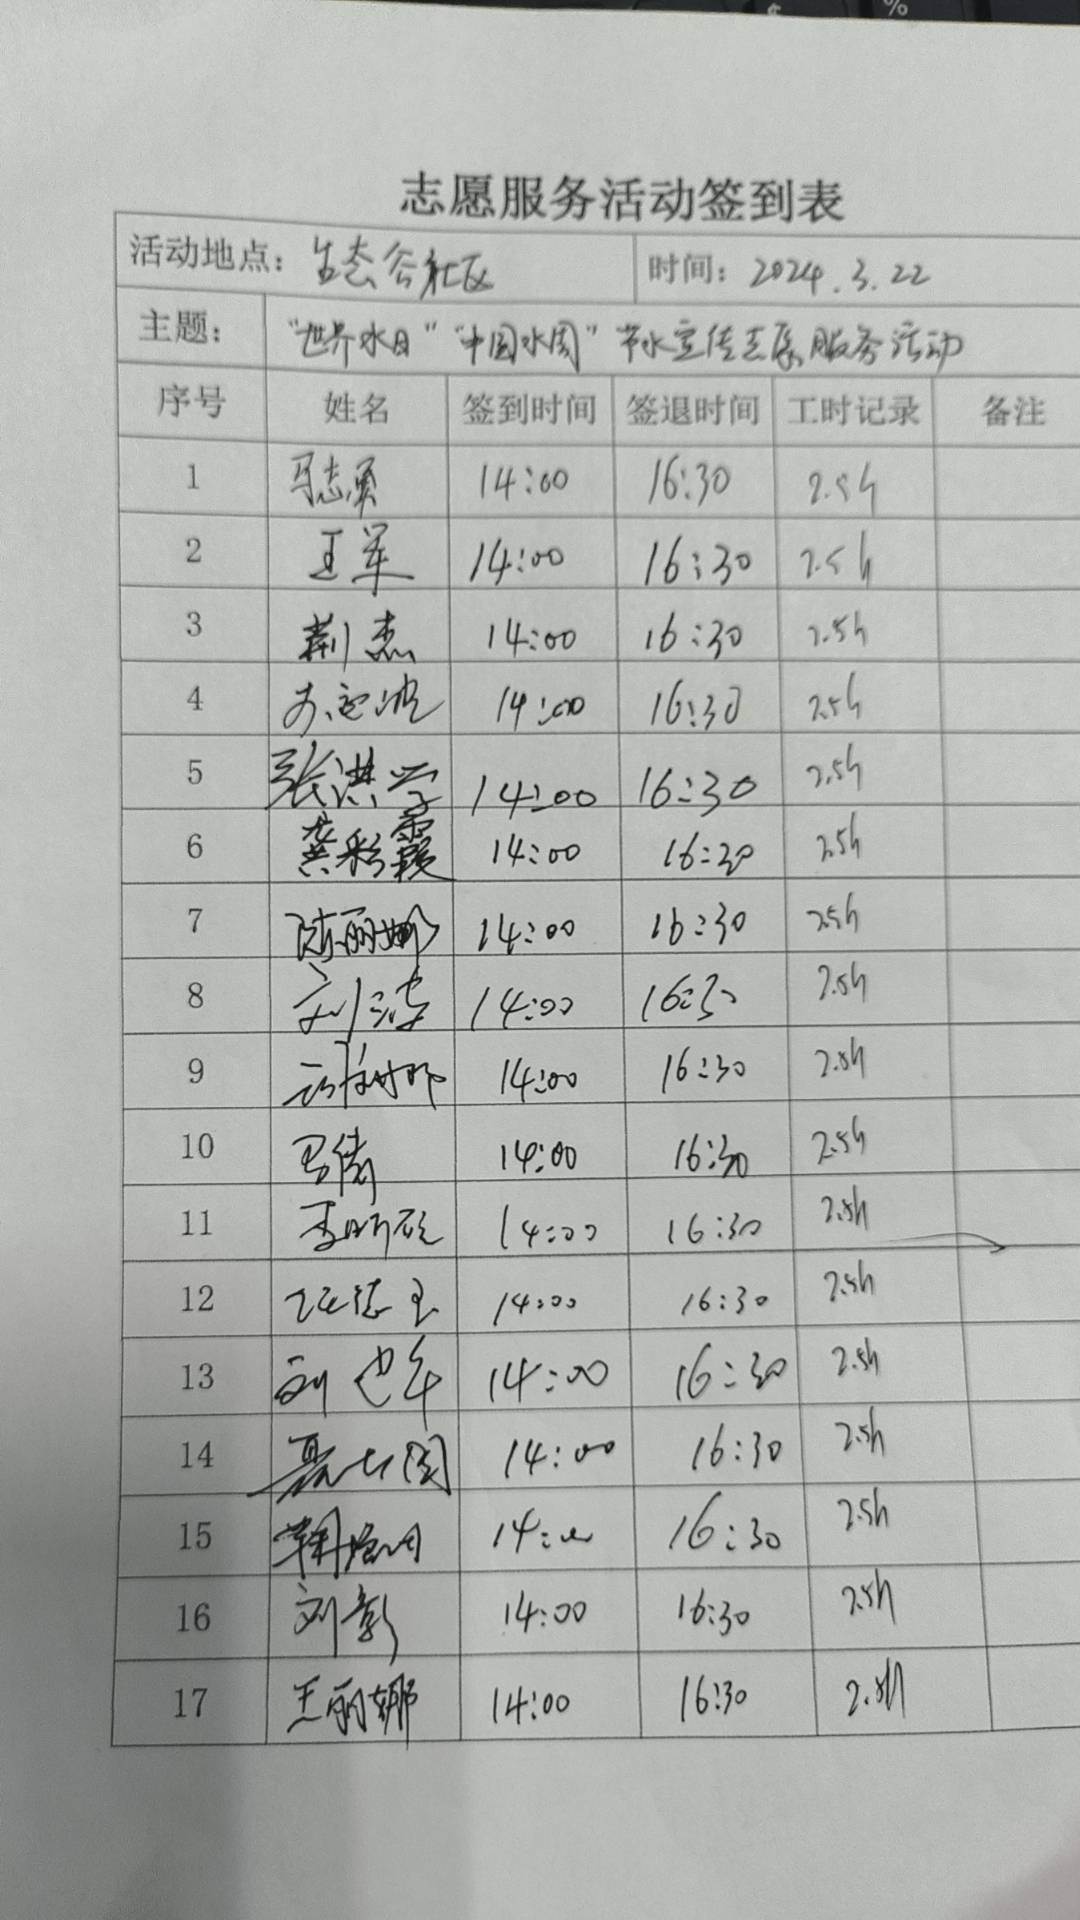 志愿服务活动签到表
活动地点：生态谷社区 时间：2024.3.22
主题： “世界水日”“中国水周”节水宣传志愿服务活动
序号 姓名 签到时间 签退时间 工时记录 备注
1 马志勇 14:00 16:30 2.5h
2 王军 14:00 16:30 2.5h
3 荆杰 14:00 16:30 2.5h
4 14:00 16:30 2.5h
5 张洪学 14:00 16:30 2.5h
6 龚彩霞 14:00 16:30 2.5h
7 陈丽娜 14:00 16:30 2.5h
8 刘涛 14:00 16:30 2.5h
9 14:00 16:30 2.5h
10 马倩 14:00 16:30 2.5h
11 14:00 16:30 2.5h
12 14:00 16:30 2.5h
13 14:00 16:30 2.5h
14 14:00 16:30 2.5h
15 14:00 16:30 2.5h
16 刘彰 14:00 16:30 2.5h
17 王丽娜 14:00 16:30 2.5h